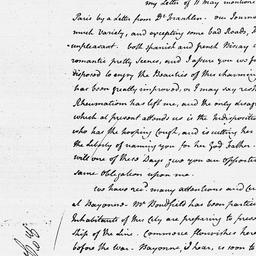 my Letter of 11 May mentione
Paris by a Letter from Dr. Franklin. our Journe
much Variety, and excepting some bad Roads, I
unpleasant. both Spanish and french Biscay a
romantic pretty Scenes, and I assure you we fe
disposed to enjoy the Beauties of this charming
has been greatly improved, or I may say resto
Rheumatism has left me, and the only disag
which at present attends us is the Indispositio
who has the hooping Cough, and is cutting her
the Liberty of naming you for her God Father.
will one of these Days give you an opportun
same obligation upon me.
we have recd. many attentions and Civ
at Bayonne. Mr
has been partic
Inhabitants of this City are preparing to prese
Ship of the Line. Commerce flourishes here
before the war. Bayonne, I hear, is soon to